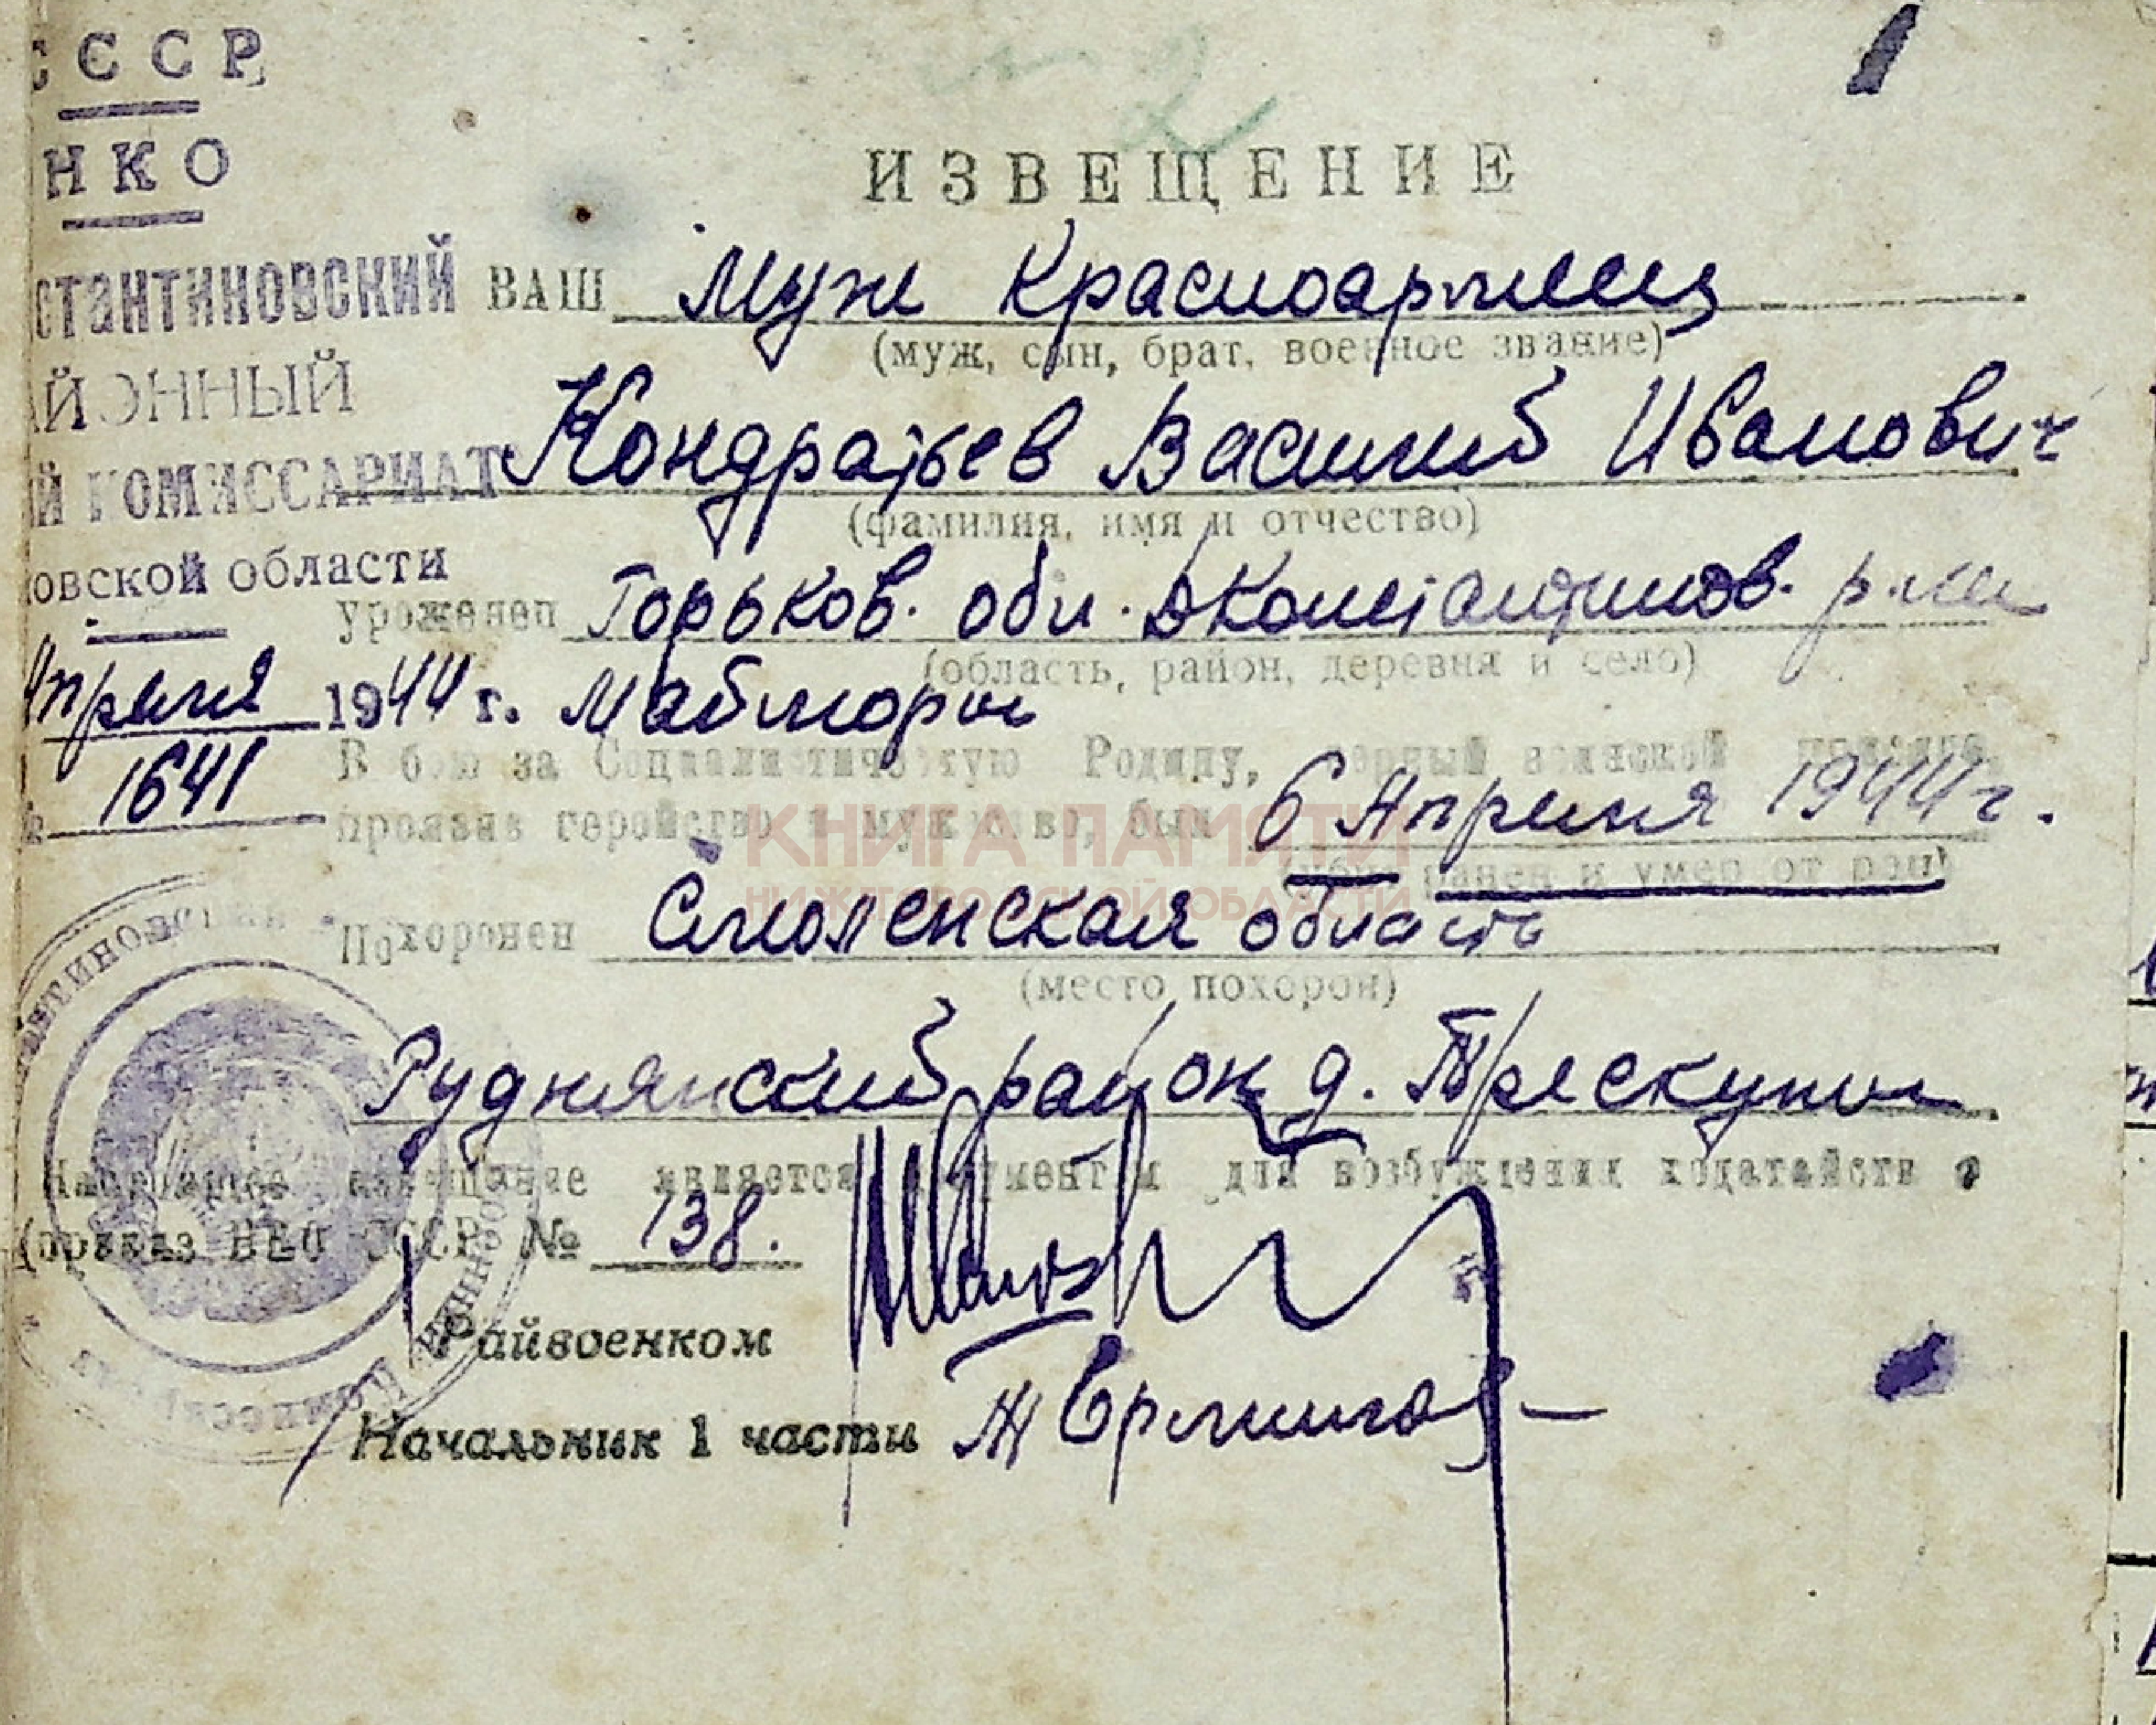 СССР
НКО
стантиновский
АЙОННЫЙ
Й КОМИССАРИАТ
овской области
Апреля 1944 г.
1641
ИЗВЕЩЕНИЕ
ВАШ муж красноармеец
(муж, сын, брат, военное звание)
Кондратьев Василий Иванович
(фамилия, имя и отчество)
уроженец Горьков. обл. Дконстантинов. р-на
(область, район, деревня и село)
Майморы
В бою за Социалистическую Родину, верный воинской присяге,
проявив геройство и мужество, был 6 Апреля 1944 г.
(убит, ранен и умер от ран)
КНИГА ПАМЯТИ
НИЖЕГОРОДСКОЙ ОБЛАСТИ
Похоронен Смоленская область
(место похорон)
Руднянский район д. Трескуны
Настоящее извещение является документом для возбуждения ходатайств о
(приказ НКО СССР № 138.
Райвоенком
Начальник 1 части